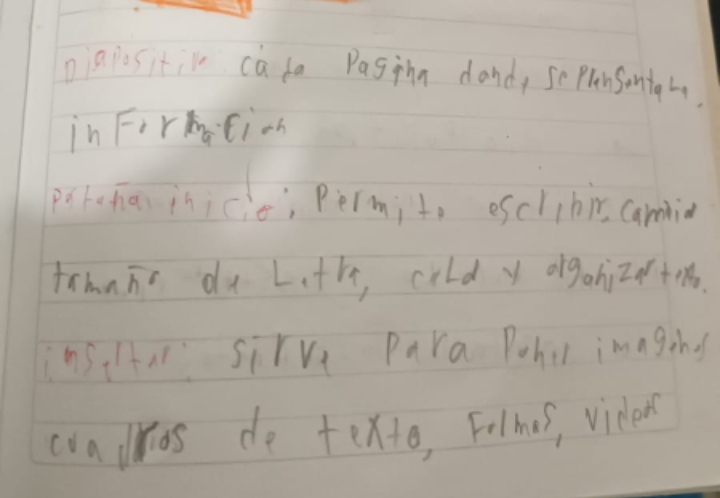 Diapositiva cada Pagina donde se Plensenta la
inFormacion
pataña inicio: Permite escribir, cambia
tamaño de Letra, colo y organizar texto.
insertar: sirve para Poner imagenes
cuadros de texto, Formas, videos